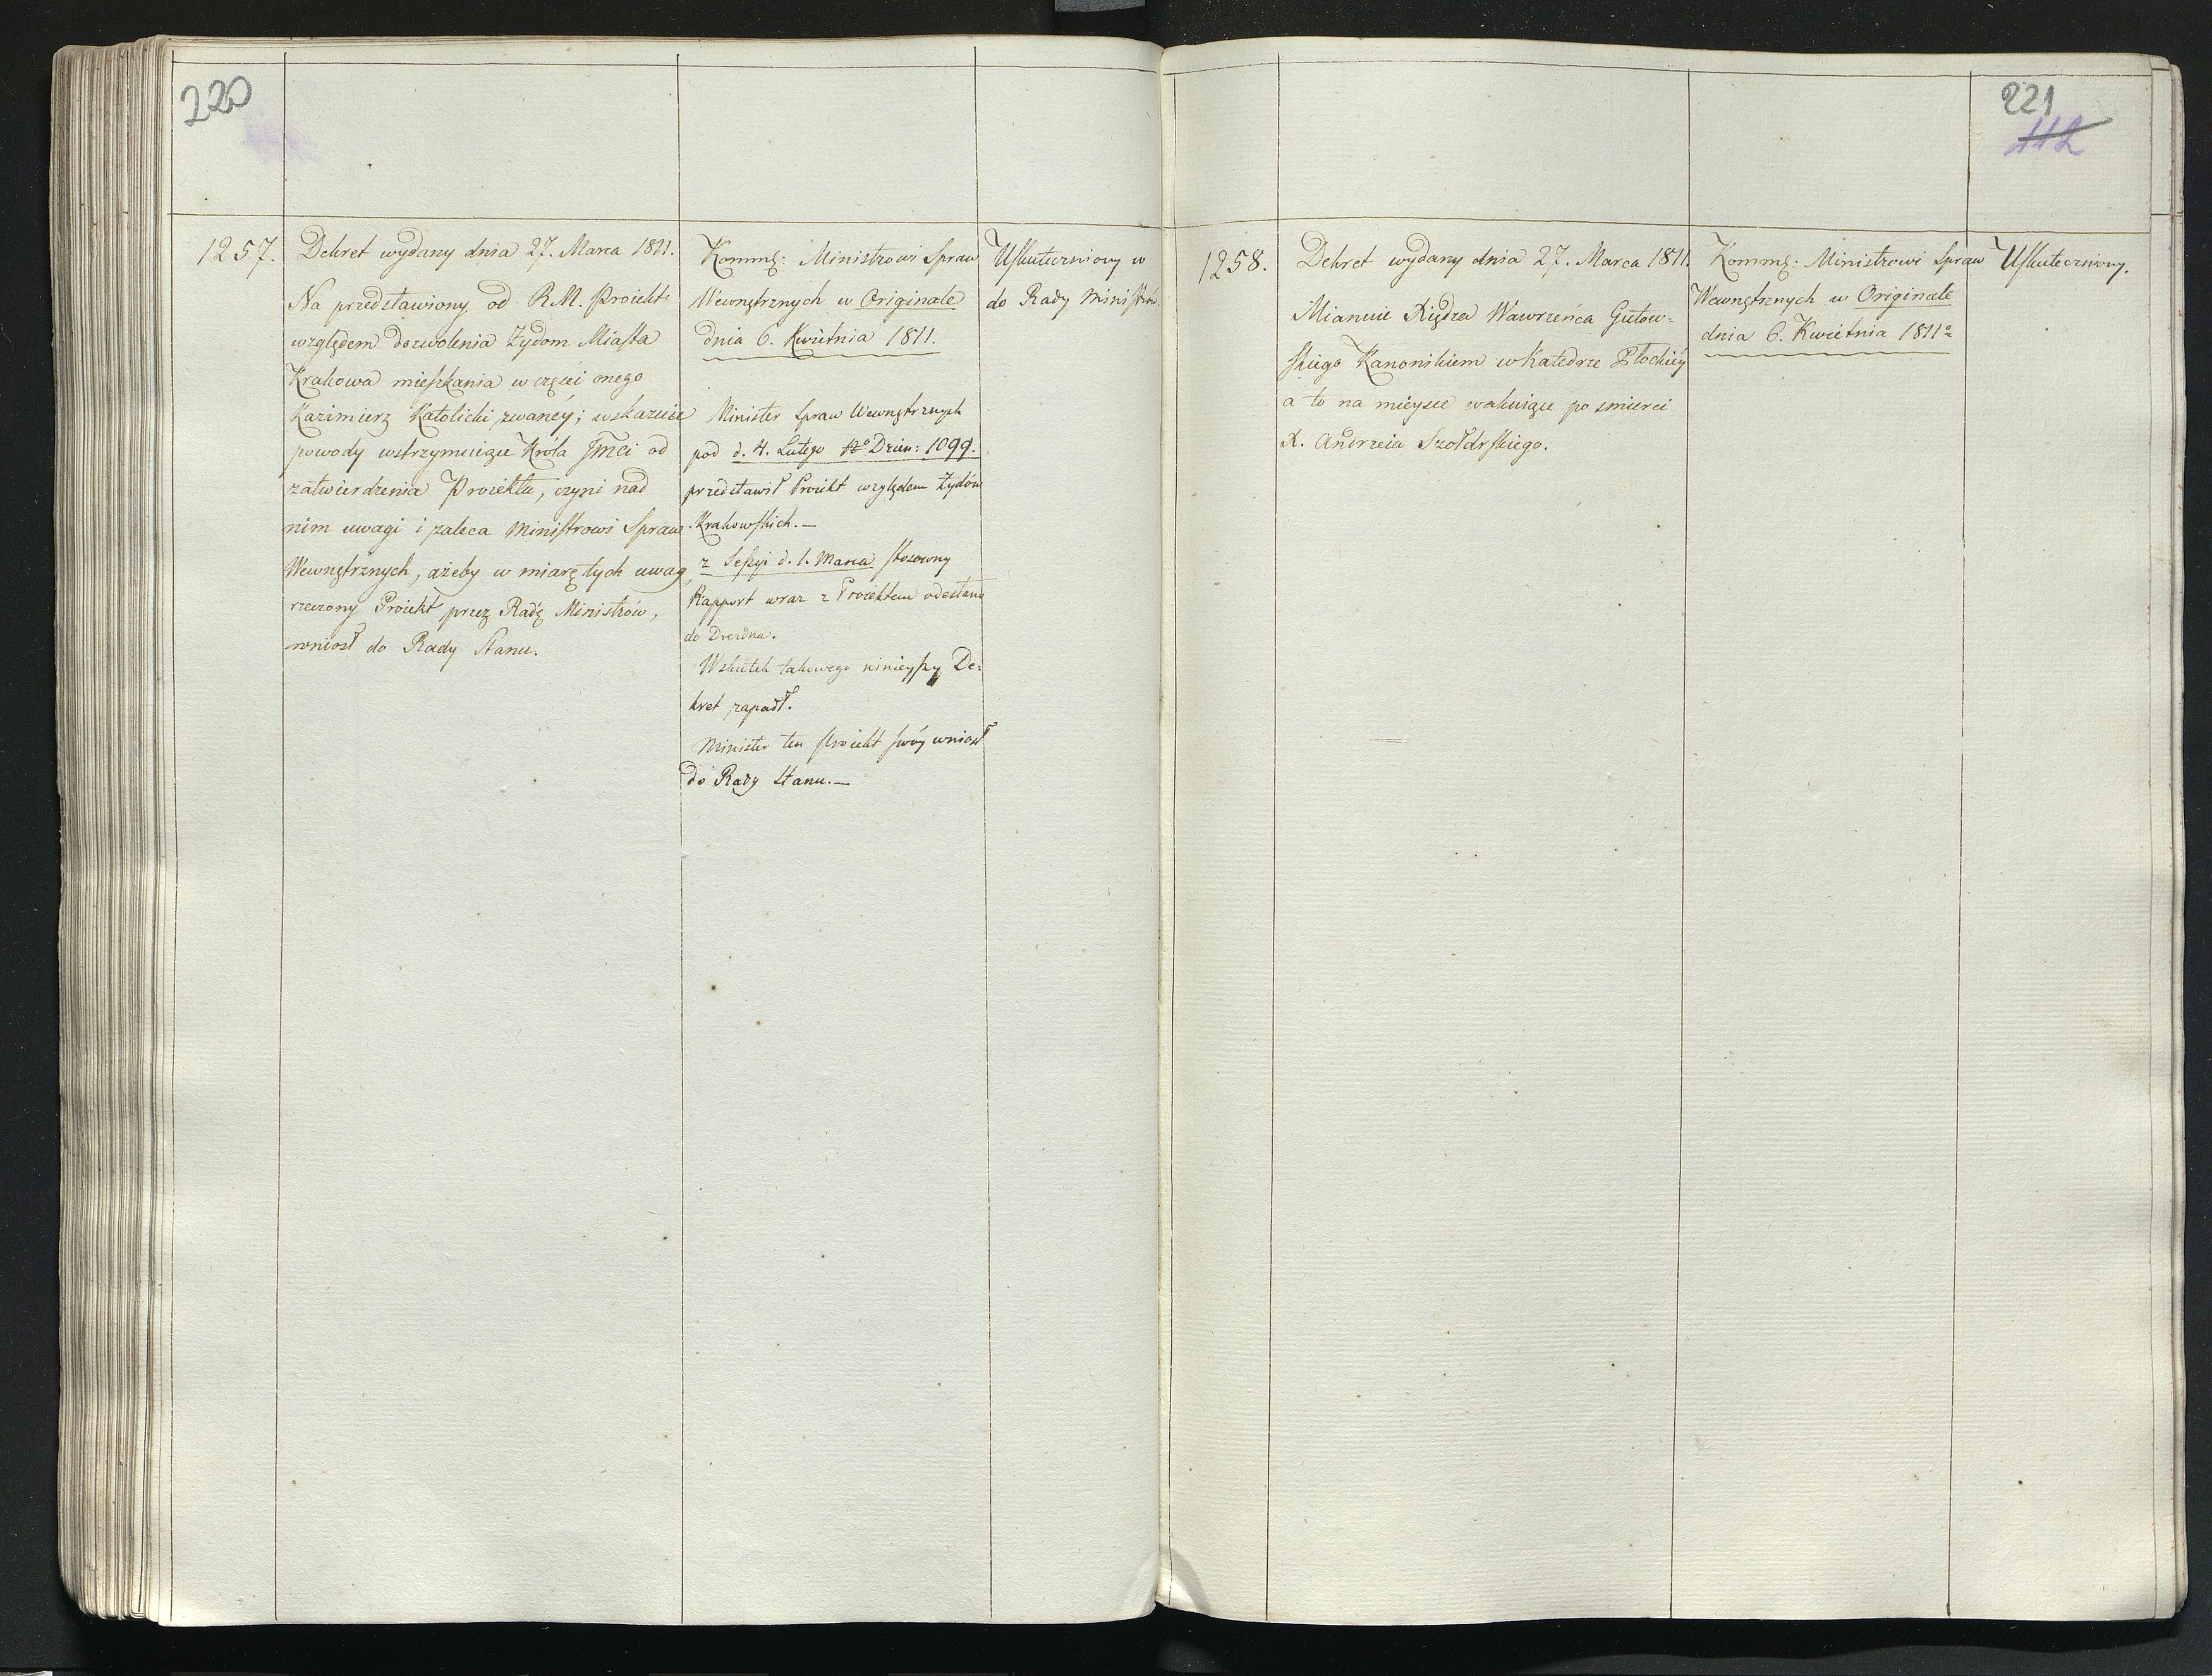 220
1257.
Dekret wydany dnia 27. Marca 1811.
Na przedstawiony od R.M. Proiekt
względem dozwolenia Żydom Miasta
Krakowa mieszkania w części onego
Kazimierz Katolicki zwaney; wskazuie
powody wstrzymuiące Króla Jmci od
zatwierdzenia Proiektu, czyni nad
nim uwagi i zaleca Ministrowi Spraw
Wewnętrznych, ażeby w miarę tych uwag,
rzeczony Proiekt przez Radę Ministrów,
wniosł do Rady Stanu.
Kommę: Ministrowi Spraw
Wewnętrznych w Originale
dnia 6. Kwietnia 1811.
Minister Spraw Wewnętrznych
pod d. 4. Lutego Dzien: 1099.
przedstawił Proiekt względem Żydów
Krakowskich.—
z Sessyi d. 1. Marca stosowny
Rapport wraz z Proiektem odesłano
do Drezna.
Wskutek takowego ninieyszy De-
kret zapadł.
Minister ten Proiekt swóy wniosł
do Rady Stanu.—
Uskuteczniony w
do Rady Ministrów.
221
112
1258.
Dekret wydany dnia 27. Marca 1811.
Mianuie Xiędza Wawrzeńca Gutow-
skiego Kanonikiem w Katedrze Płockiey
a to na mieysce wakuiące po smierci
X. Andrzeia Szołdrskiego.
Kommę: Ministrowi Spraw
Wewnętrznych w Originale
dnia 6. Kwietnia 1811
Uskuteczniony.